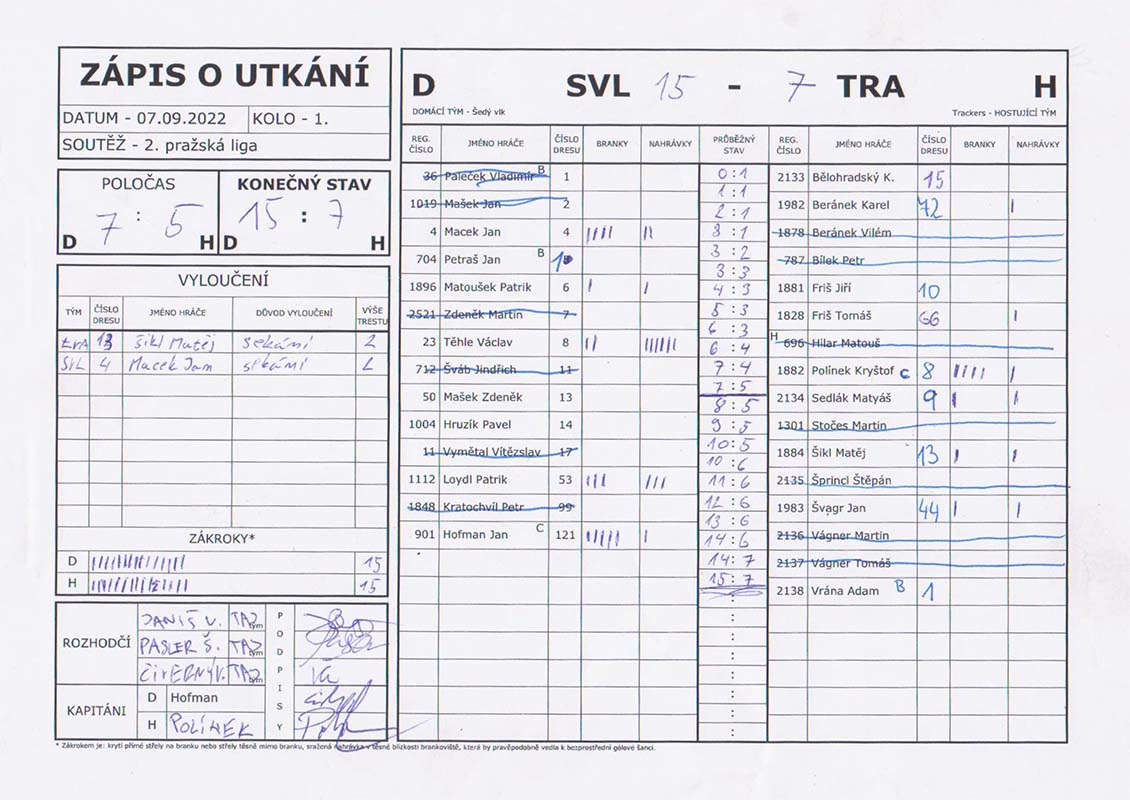 ZÁPIS O UTKÁNÍ
DATUM - 07.09.2022 KOLO - 1.
SOUTĚŽ - 2. pražská liga
POLOČAS KONEČNÝ STAV
7 : 5 15 : 7
D H D H
VYLOUČENÍ
TÝM ČÍSLO DRESU JMÉNO HRÁČE DŮVOD VYLOUČENÍ VÝŠE TRESTU
TRA 13 Šikl Matěj sekání 2
SVL 4 Macek Jan sekání 2
ZÁKROKY*
D 15
H 15
ROZHODČÍ
JANIŠ V. TAZ tým
PASLER Š. TAZ tým
TAZ tým
KAPITÁNI
D Hofman
H POLÍNEK
PODPISY
D SVL 15 - 7 TRA H
DOMÁCÍ TÝM - Šedý vlk Trackers - HOSTUJÍCÍ TÝM
REG. ČÍSLO JMÉNO HRÁČE ČÍSLO DRESU BRANKY NAHRÁVKY PRŮBĚŽNÝ STAV REG. ČÍSLO JMÉNO HRÁČE ČÍSLO DRESU BRANKY NAHRÁVKY
36 Paleček Vladimír B 1
1019 Mašek Jan 2
4 Macek Jan 4 IIII II
704 Petraš Jan B
1896 Matoušek Patrik 6 I I
2521 Zdeněk Martin 7
23 Těhle Václav 8 II IIIIII
712 Šváb Jindřich 11
50 Mašek Zdeněk 13
1004 Hruzík Pavel 14
11 Vymětal Vítězslav 17
1112 Loydl Patrik 53 III III
1848 Kratochvíl Petr 99
901 Hofman Jan C 121 IIIII I
0:1
1:1
2:1
3:1
3:2
3:3
4:3
5:3
6:3
6:4
7:4
7:5
8:5
9:5
10:5
10:6
11:6
12:6
13:6
14:6
14:7
15:7
2133 Bělohradský K. 15
1982 Beránek Karel 72 I
1878 Beránek Vilém
787 Bílek Petr
1881 Friš Jiří 10
1828 Friš Tomáš 66 I
H 696 Hilar Matouš
1882 Polínek Kryštof C 8 IIII I
2134 Sedlák Matyáš 9 I I
1301 Stočes Martin
1884 Šikl Matěj 13 I I
2135 Šprincl Štěpán
1983 Švagr Jan 44 I I
2136 Vágner Martin
2137 Vágner Tomáš
2138 Vrána Adam B 1
* Zákrokem je: krytí přímé střely na branku nebo střely těsně mimo branku, sražená nahrávka v těsné blízkosti brankoviště, která by pravěpodobně vedla k bezprostřední gólové šanci.